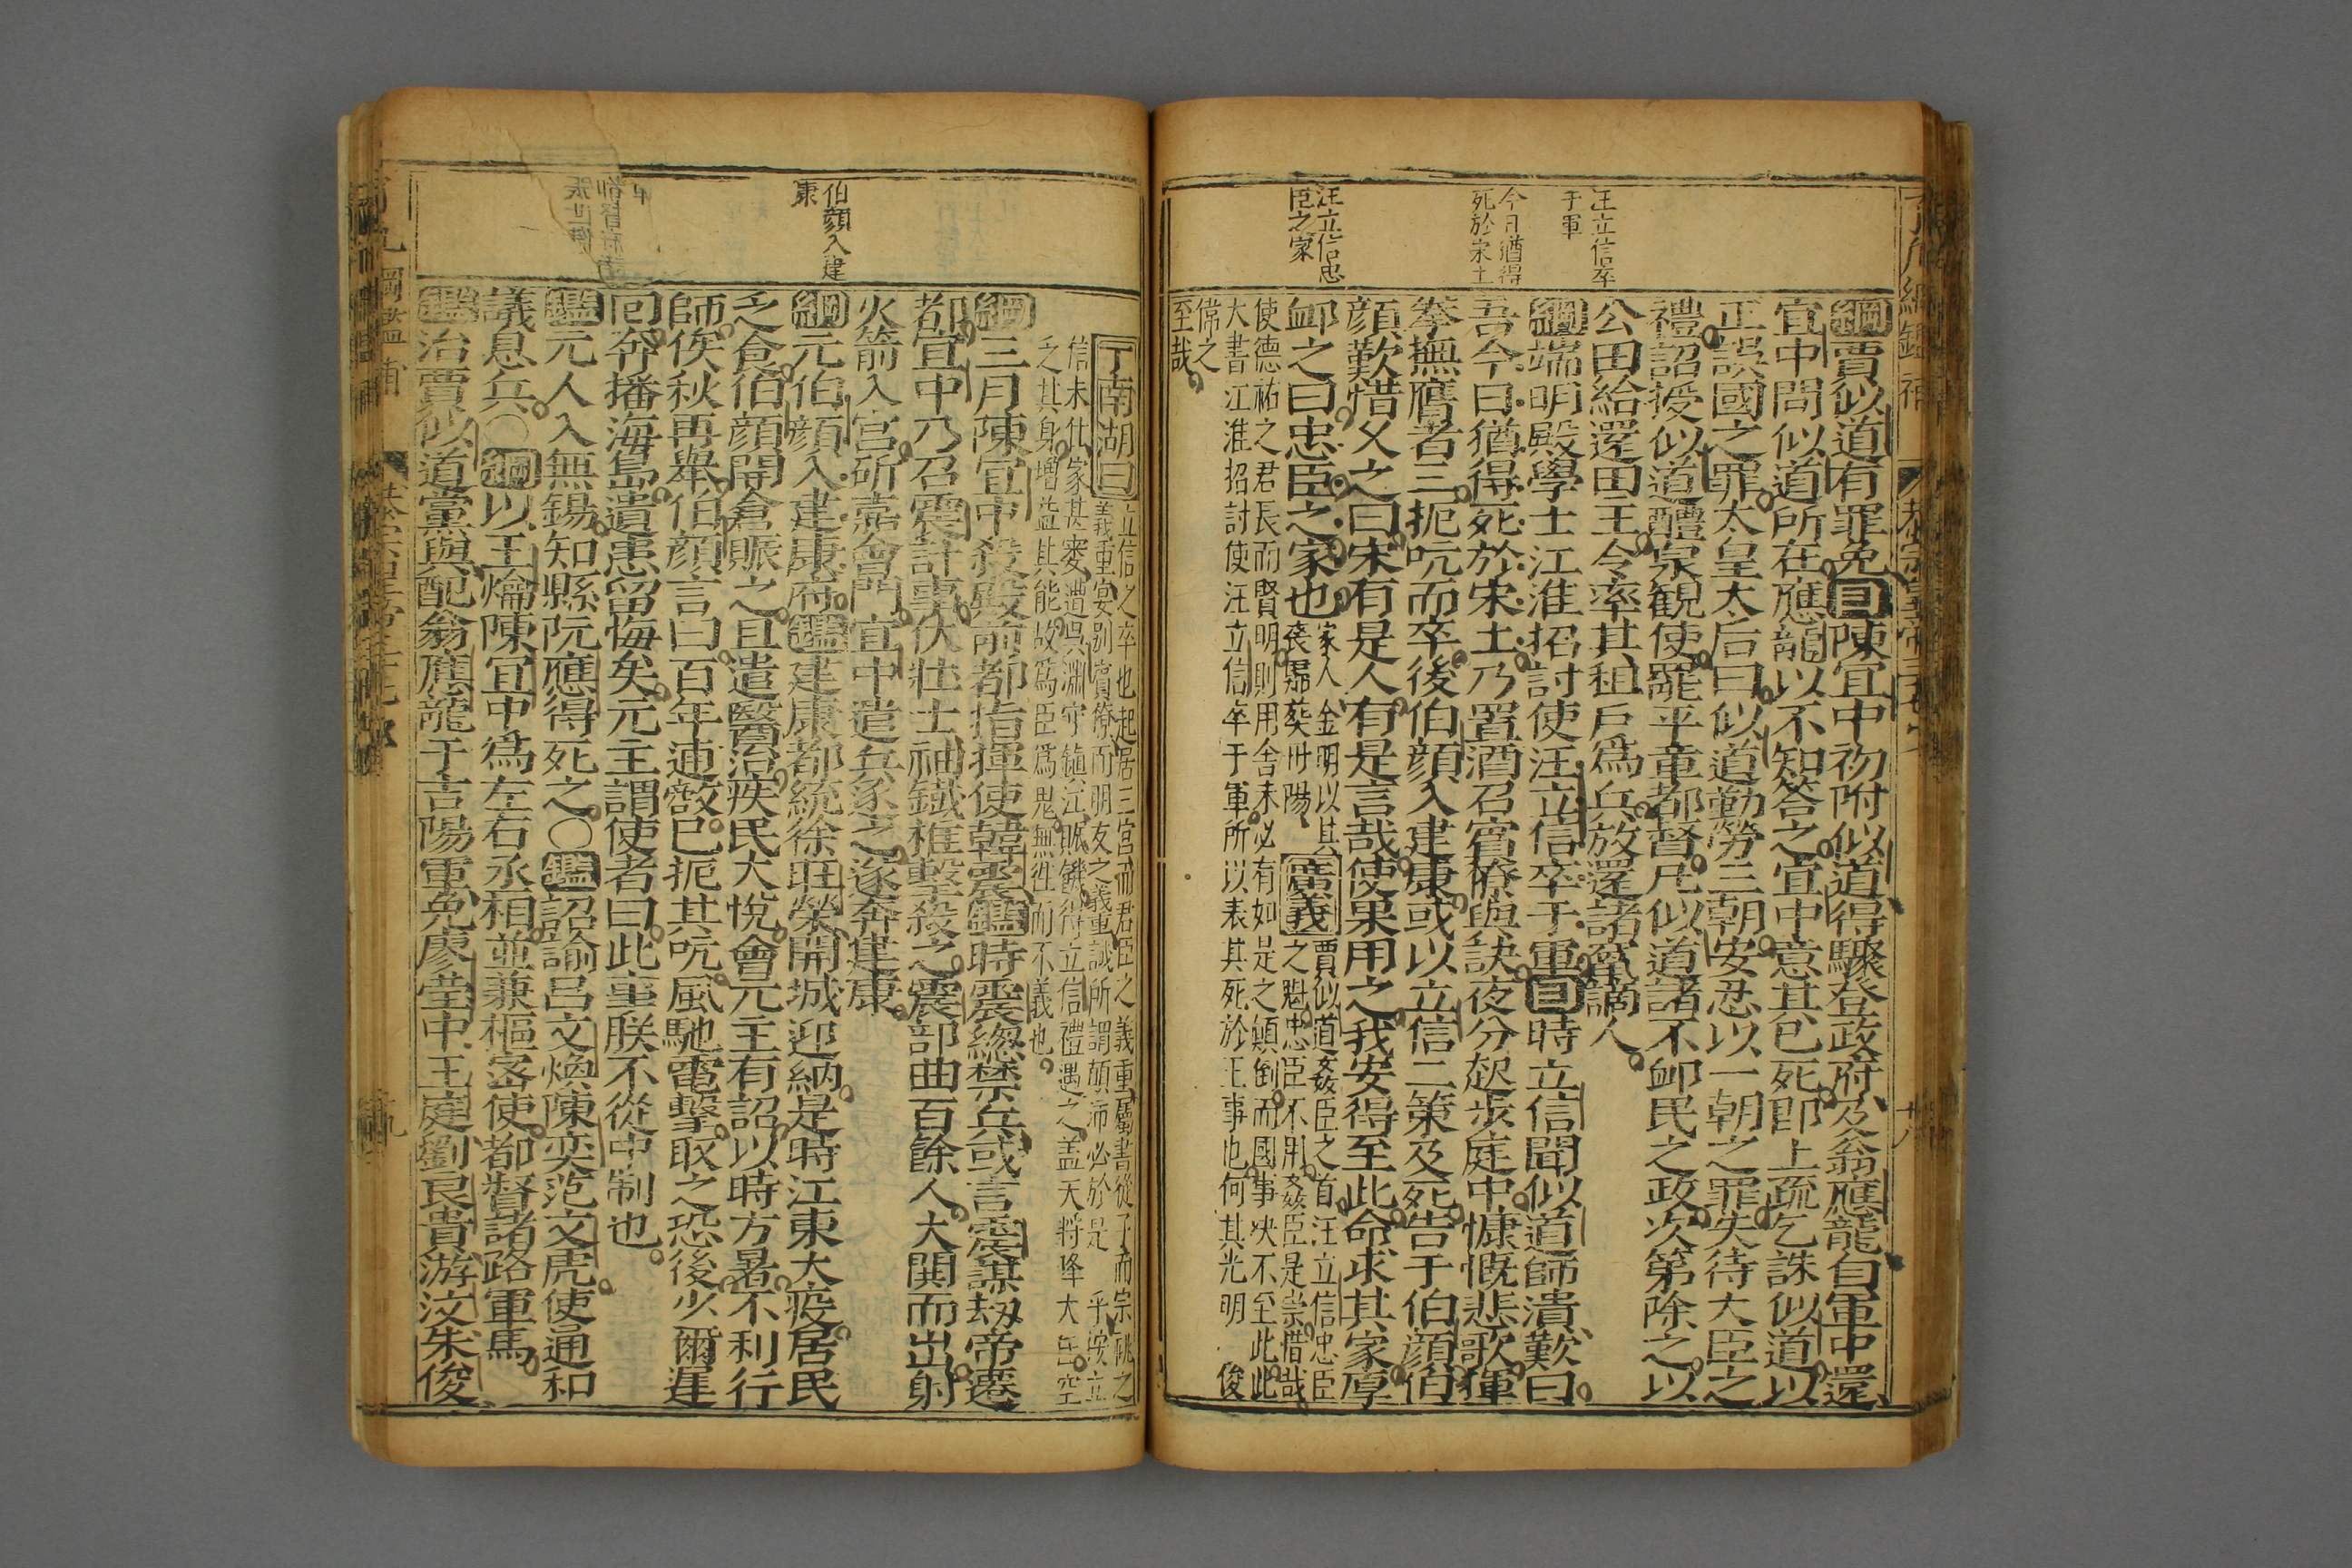 汪立信卒
于軍
今日猶得
死於宋土
汪立信忠
臣之家
綱賈似道有罪免目陳宜中初附似道得驟登政府及翁應龍自軍中還
宜中問似道所在應龍以不知答之宜中意其已死卽上疏乞誅似道以
正誤國之罪太皇太后曰似道勤勞三朝安忍以一朝之罪失待大臣之
禮詔授似道醴泉觀使罷平章都督凡似道諸不衈民之政次第除之以
公田給還田主令率其租戶爲兵放還諸竄謫人
綱端明殿學士江淮招討使汪立信卒于軍目時立信聞似道師潰歎曰
吾今日猶得死於宋土乃置酒召賓僚與訣夜分起步庭中慷慨悲歌握
拳撫膺者三扼吭而卒後伯顏入建康或以立信二策及死告于伯顏伯
顏歎惜久之曰宋有是人有是言哉使果用之我安得至此命求其家厚
衈之曰忠臣之家也家人金明以其
喪歸葬丹陽
廣義賈似道姦臣之首汪立信忠臣
之魁忠臣不用姦臣是崇惜哉
使德祐之君長而賢明則用舍未必有如是之顚倒而國事决不至此此
大書江淮招討使汪立信卒于軍所以表其死於王事也何其光明 俊
偉之
至哉
丁南湖曰立信之卒也起居三宮而君臣之義重屬書從子而宗祧之
義重宴别賓僚而朋友之義重誠所謂顚沛必於是 乎按立
信未仕家甚窶遭吳淵守鎭江賑饑得立信禮遇之盖天將降大任空
乏其身增益其能故爲臣爲鬼無往而不義也
綱三月陳宜中殺殿前都指揮使韓震鑑時震總禁兵或言震謀刼帝遷
都宜中乃召震計事伏壯士袖鐵椎擊殺之震部曲百餘人大閧而出射
火箭入宮斫嘉會門宜中遣兵逐之遂奔建康
伯顏入建
康
綱元伯顏入建康府鑑建康都統徐旺榮開城迎納是時江東大疫居民
乏食伯顏開倉賑之且遣醫治疾民大悅會元主有詔以時方暑不利行
師俟秋再舉伯顏言曰百年逋敵已扼其吭風馳電擊取之恐後少爾遲
回奔播海島遺患留悔矣元主謂使者曰此事朕不從中制也
鑑元人入無錫知縣阮應得死之○鑑詔諭呂文煥陳奕范文虎使通和
議息兵○綱以王爚陳宜中爲左右丞相並兼樞密使都督諸路軍馬
鑑治賈似道黨與配翁應龍于吉陽軍免廖瑩中王庭劉良貴游汶朱俊